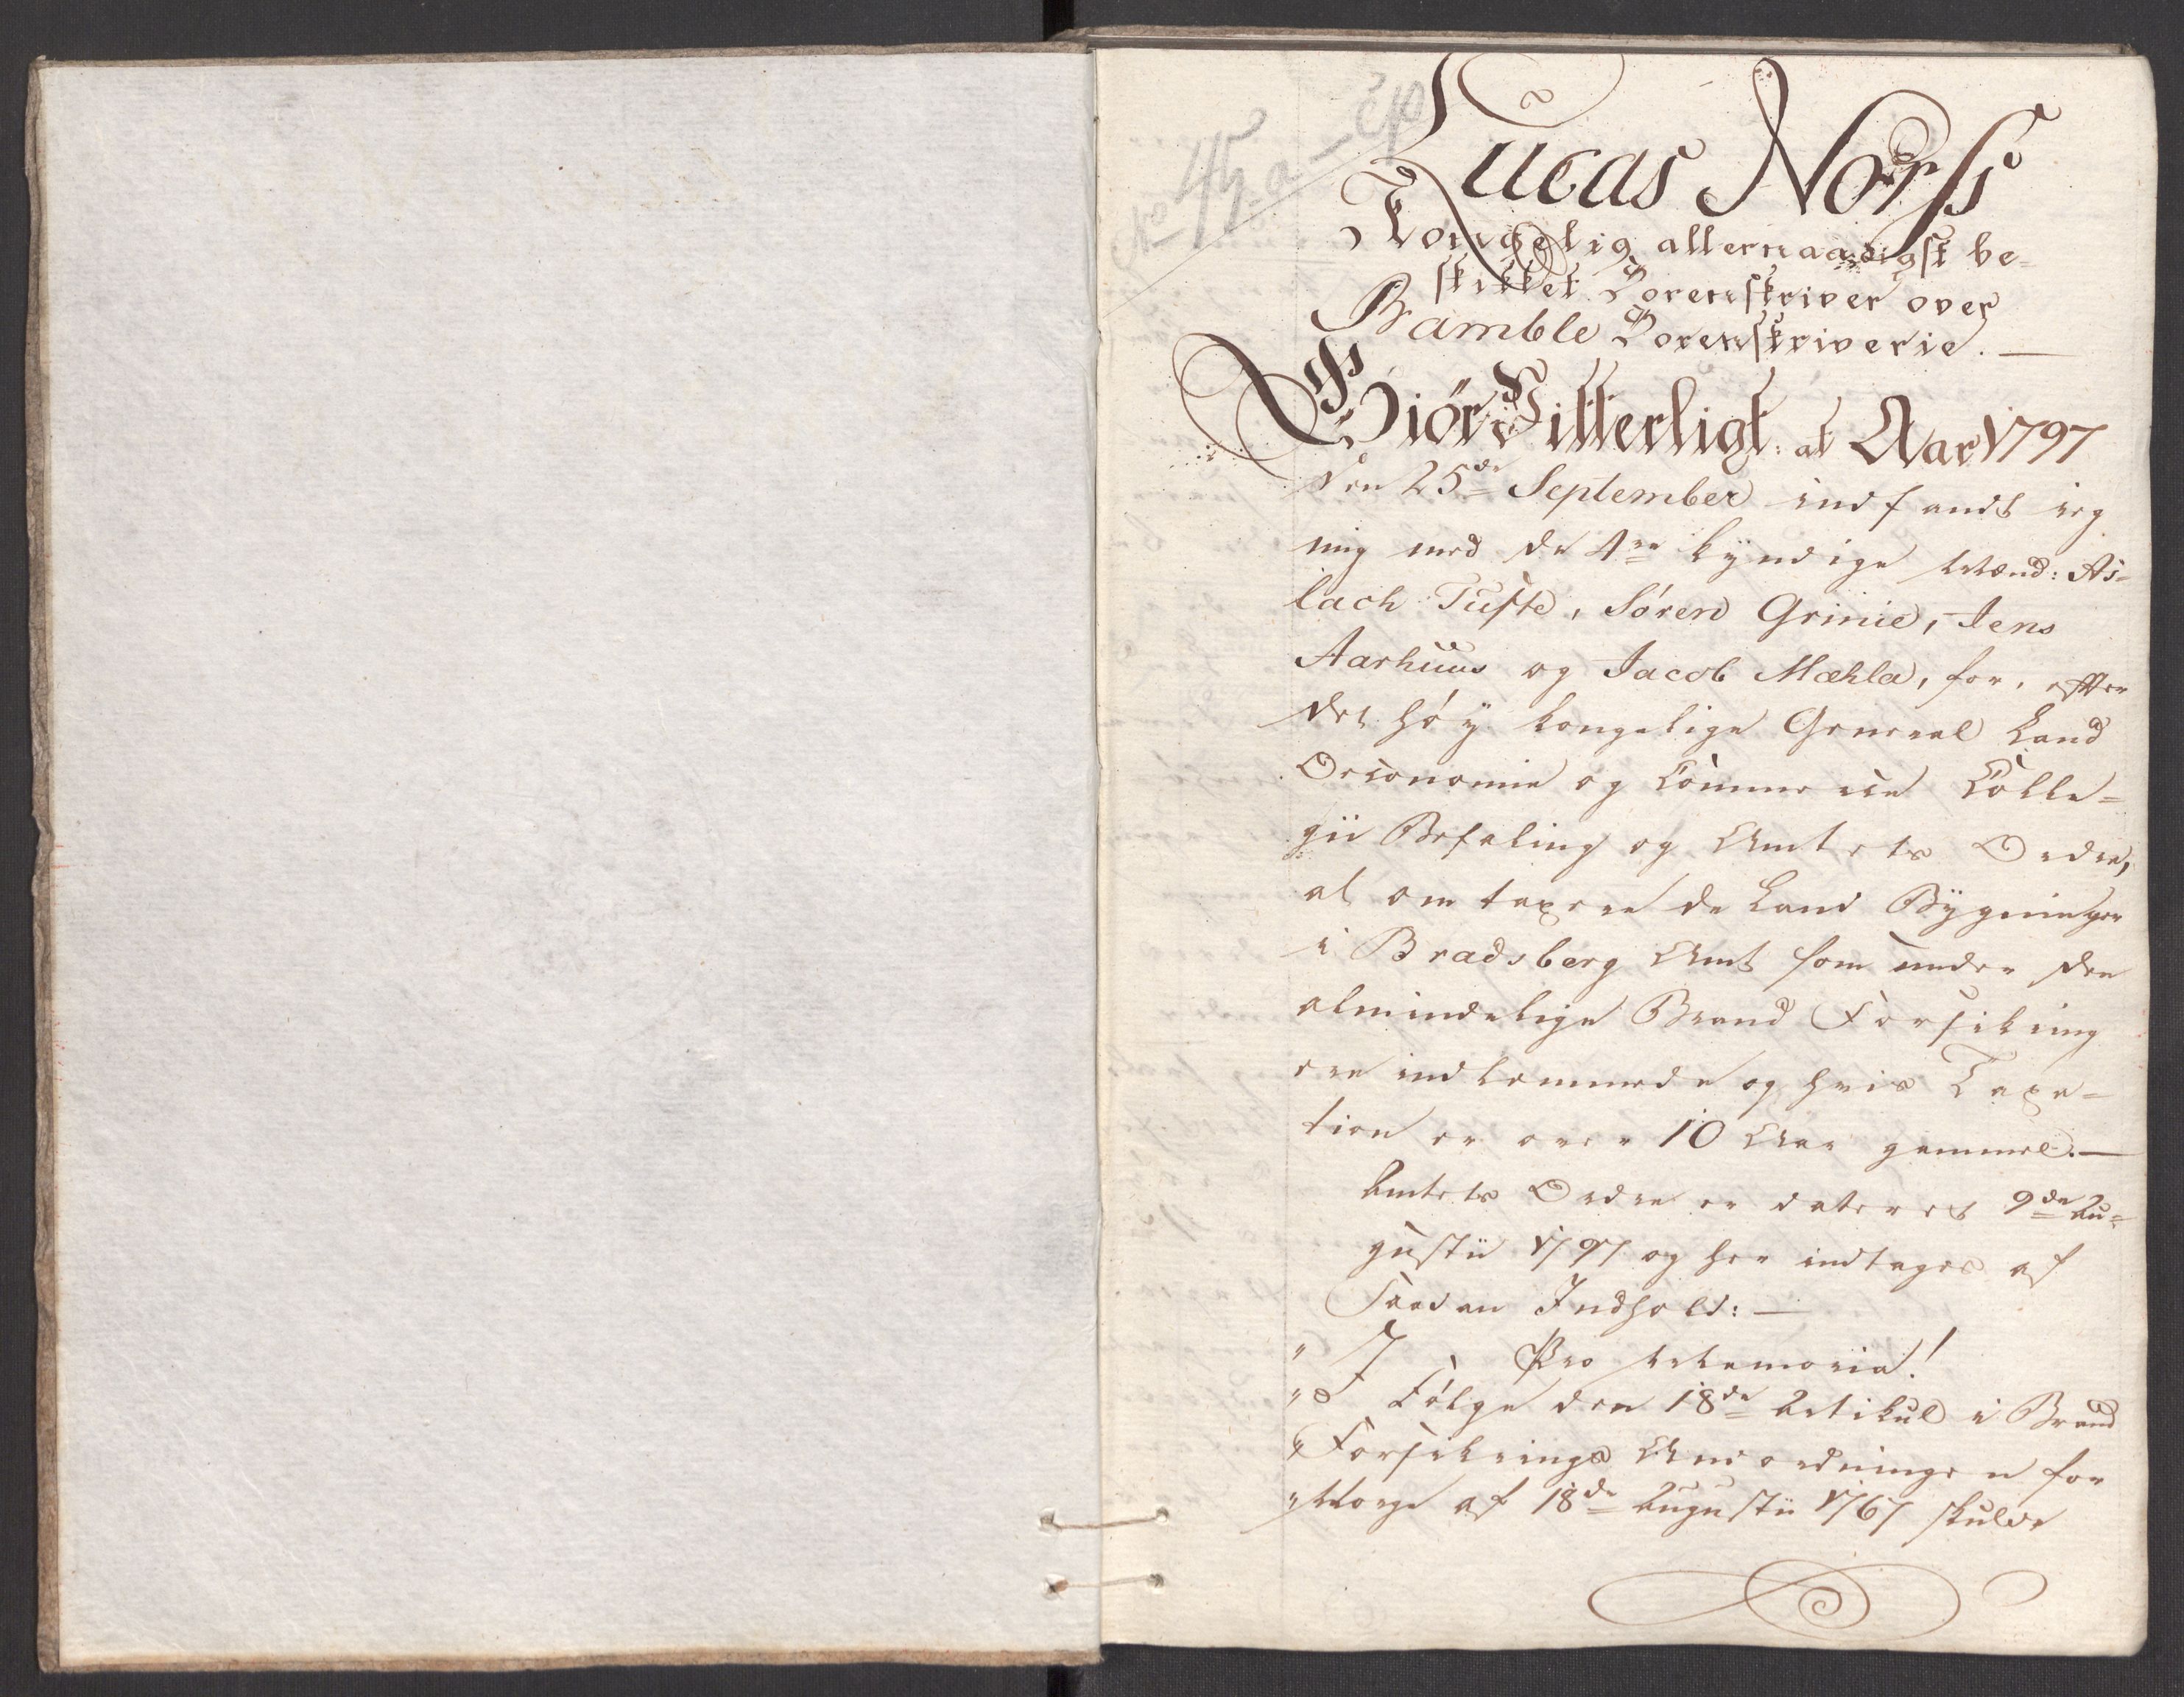 Lucas Norss
Kongelig allernaadigst be-
skikket Sorenskriver over
Bamble Sorenskriverie. —
Giør Vitterligt: at Aar 1797
den 25de September indfandt ieg
mig med de 4re kyndige Mænd: As-
lach Tufte, Søren Grinie, Jens
Aarhuus og Jacob Mæhla, for, efter
det høy kongelige General Land
Oeconomie og Commerce Colle-
gii Befaling og Amtets Ordre,
at om taxere de Land Bygninger
i Bradsberg Amt som under den
almindelige Brand Forsikring
ere indlemmede og hvis Taxa-
tion er over 10 Aar gammel. —
Amtets Ordre er dateret 9de Au-
gustii 1797 og her indtages af
Saadan Indhold: —
" Pro Memoria!
" I Følge den 18de Artikul i Brand
" Forsikrings Anordningen for
" Norge af 18de Augustii 1767 skulde